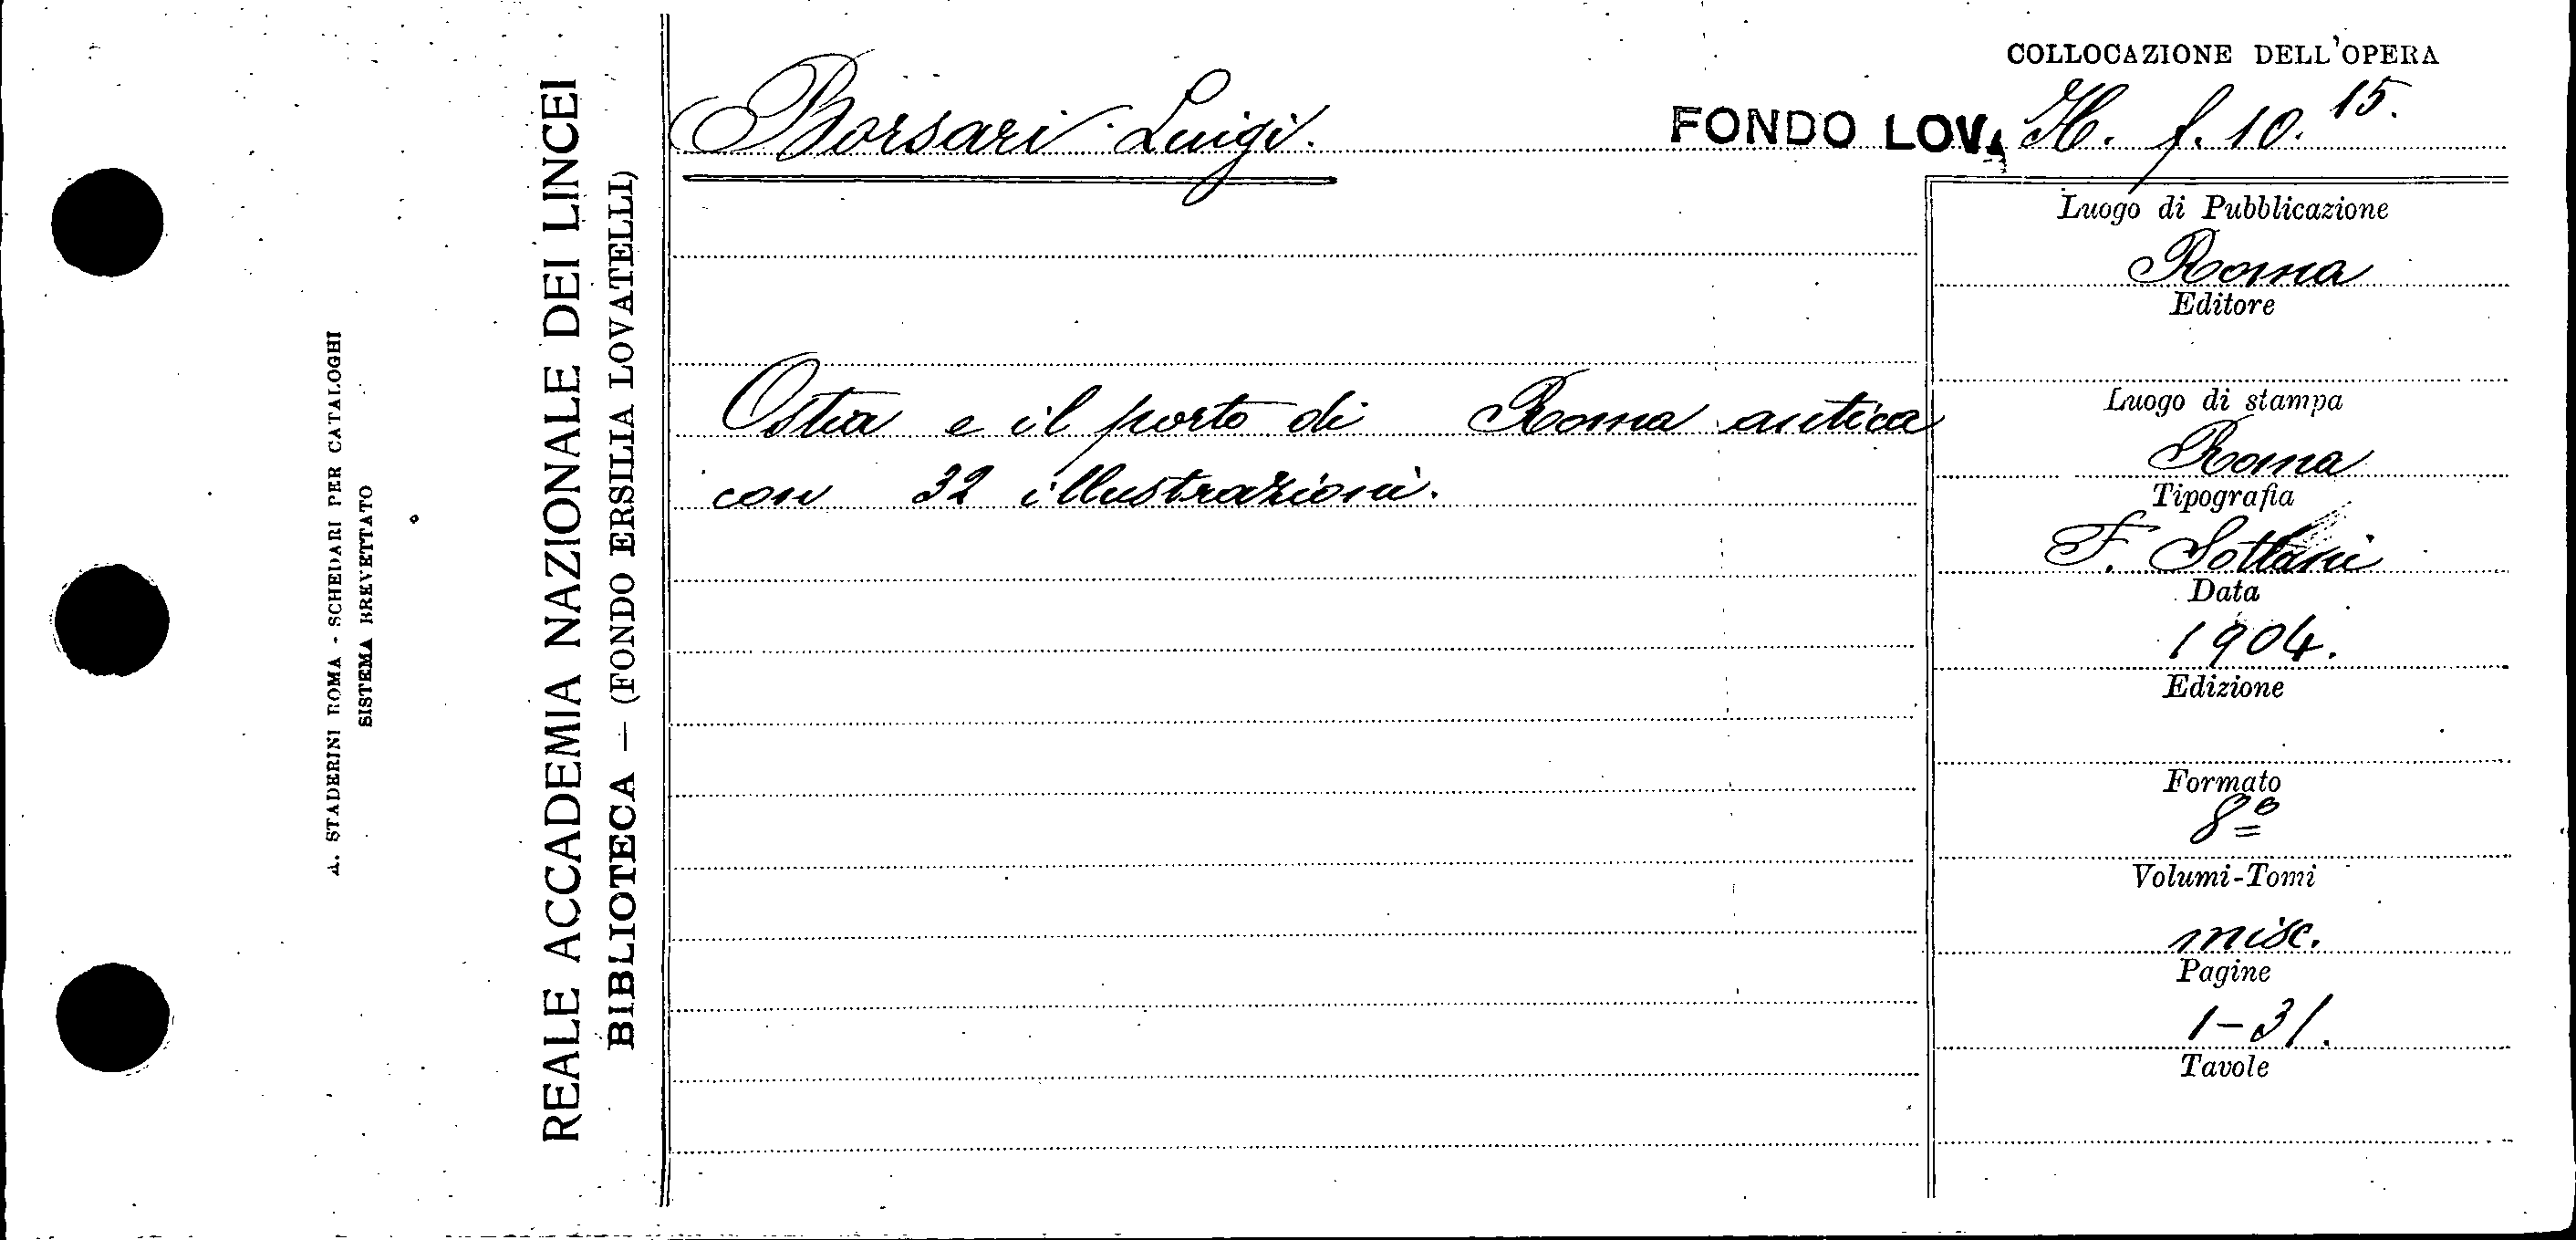 COLLOCAZIONE DELL'OPERA
Borsari Luigi.
FONDO LOV. H. f. 10. 15.
Ostia e il porto di Roma antica
con 32 illustrazioni.
Luogo di Pubblicazione
Roma
Editore
Luogo di stampa
Roma
Tipografia
F.
Data
1904.
Edizione
Formato
8º
Volumi-Tomi
misc.
Pagine
1-31.
Tavole
REALE ACCADEMIA NAZIONALE DEI LINCEI
BIBLIOTECA — (FONDO ERSILIA LOVATELLI)
A. STADERINI ROMA - SCHEDARI PER CATALOGHI
SISTEMA BREVETTATO